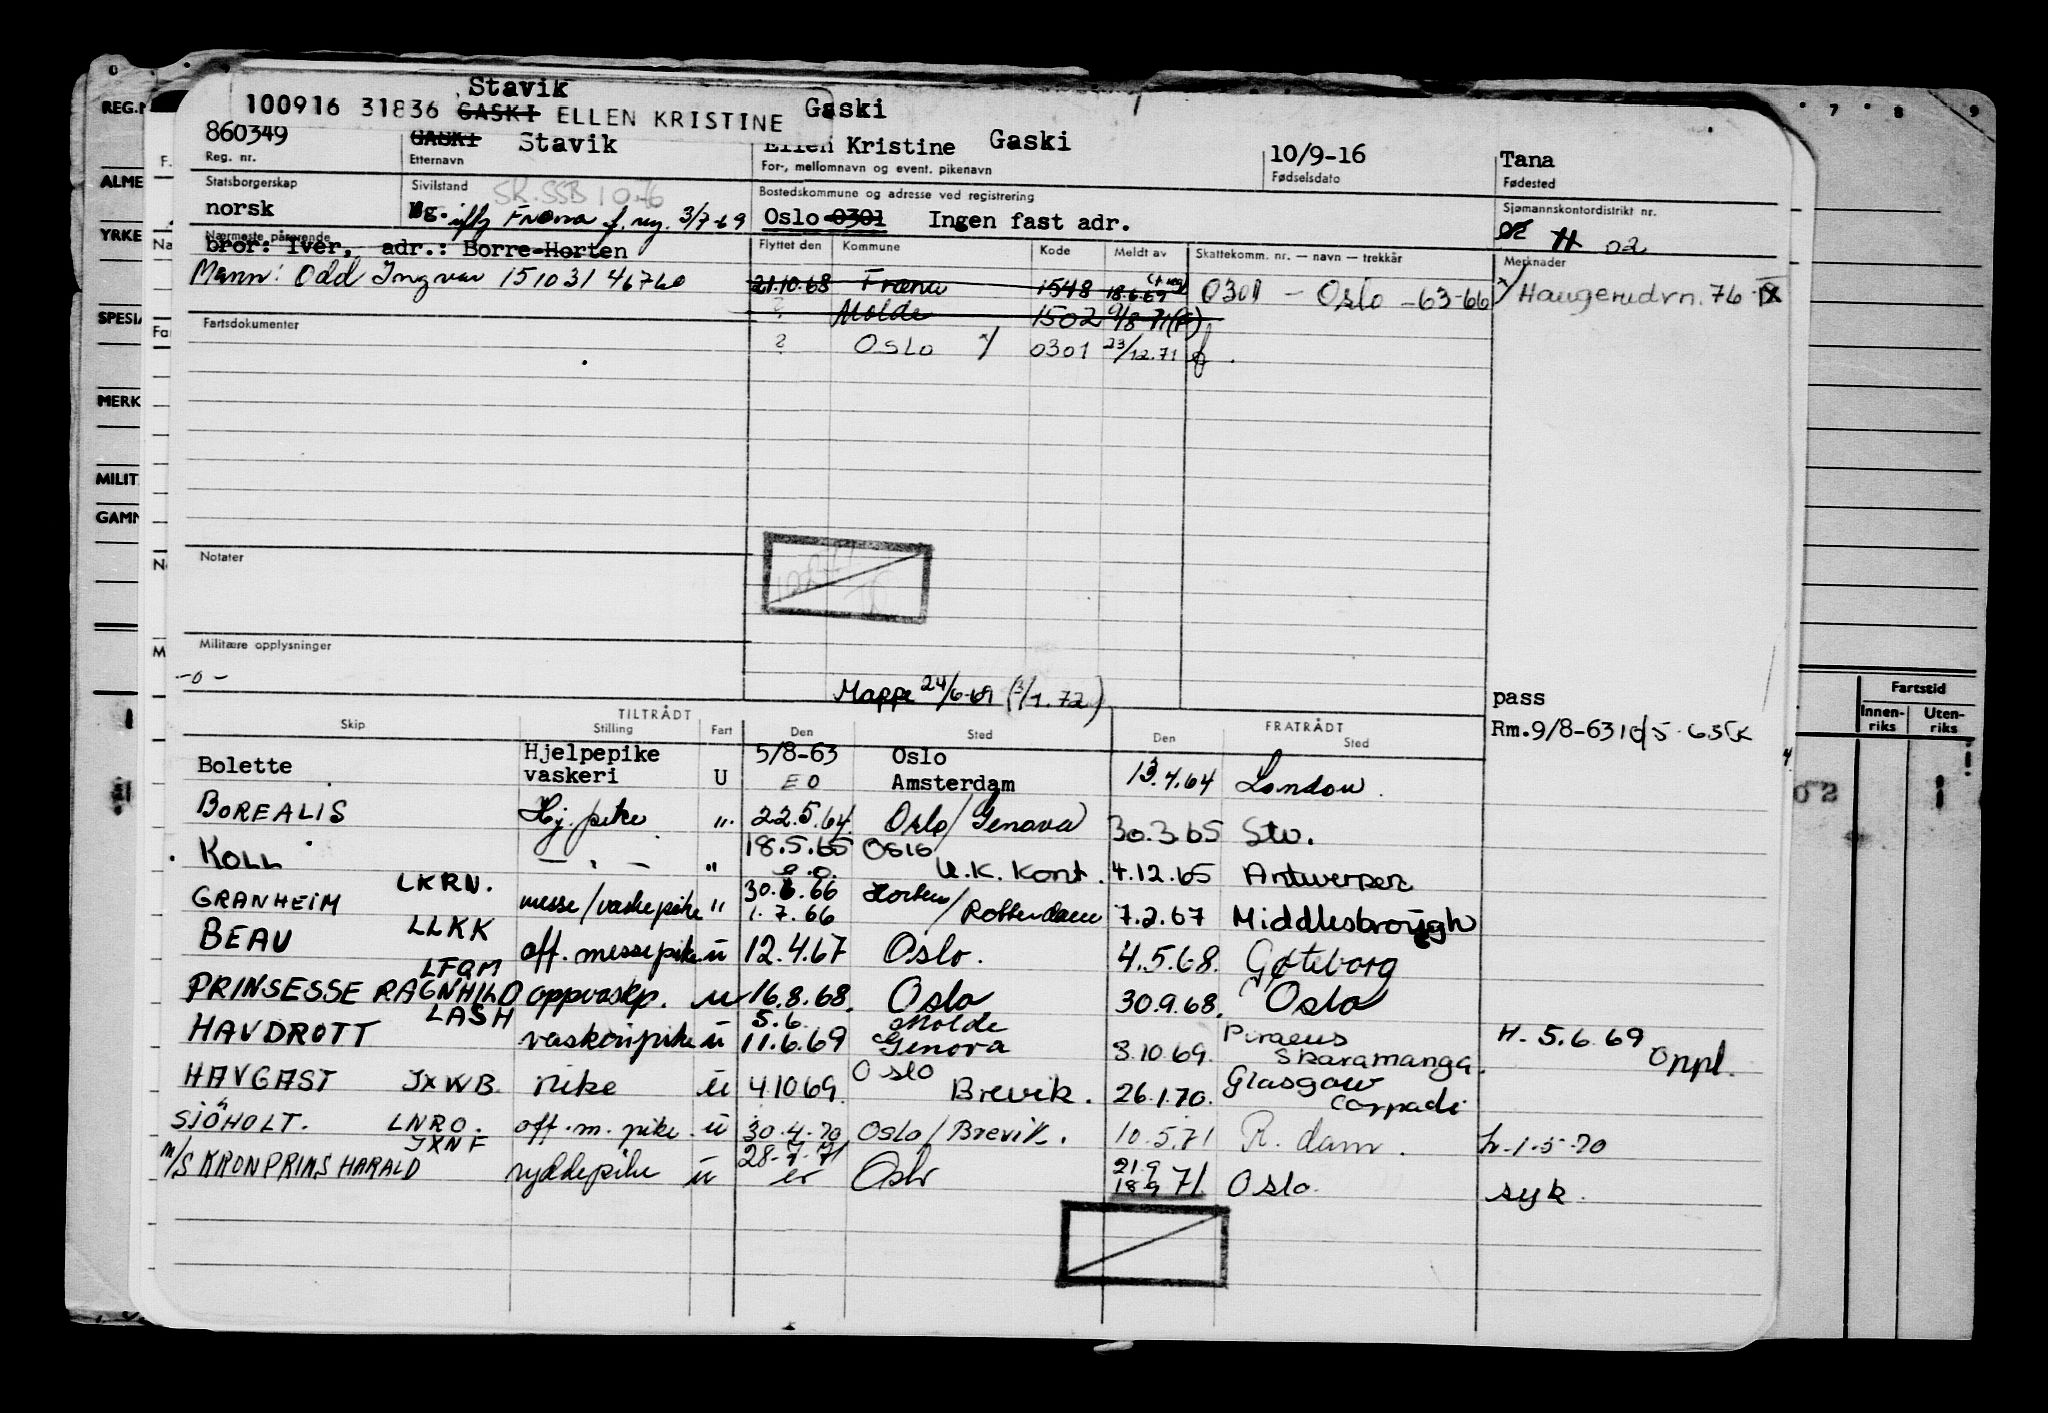 Stavik
100916 31836 GASKI ELLEN KRISTINE Gaski
860349 GASKI Stavik Ellen Kristine Gaski 10/9-16 Tana
Reg. nr. Etternavn For-, mellomnavn og event. pikenavn Fødselsdato Fødested
Statsborgerskap Sivilstand Bostedskommune og adresse ved registrering Sjømannskontordistrikt nr.
norsk Ug. Fræna f. reg. 3/7-69 Oslo 0301 Ingen fast adr. 02 11 02
Nærmeste pårørende Flyttet den Kommune Kode Meldt av Skattekomm. nr. — navn — trekkår Merknader
bror: Iver, adr.: Borre-Horten
Mann: Odd Ingvar 151031 46760 21.10.68 Fræna 1548 18.6.69 0301 - Oslo -63-66 x/ Haugerudvn. 76
? Molde 1502 9/8-71(F)
Fartsdokumenter
? Oslo x/ 0301 23/12.71 f.
Notater
Militære opplysninger
-0-
Mappe 24/6-69 (3/1.72) pass
Rm.9/8-63
TILTRÅDT FRATRÅDT
Skip Stilling Fart Den Sted Den Sted
Bolette Hjelpepike vaskeri U 5/8-63 EO Oslo Amsterdam 13.4.64 London.
BOREALIS Hj. pike " 22.5.64. Oslo/Genova 30.3.65 Stv.
KOLL — " — " 18.5.65 e.o. Oslo U.K. Kont. 4.12.65 Antwerpen
GRANHEIM LKRN. messe/vaskepike " 30.6.66 1.7.66 Horten/Rotterdam 7.2.67 Middlesbrough
BEAU LLKK off. messepike u 12.4.67 Oslo. 4.5.68. Gøteborg
PRINSESSE RAGNHILD LFQM oppvaskp. u 16.8.68. Oslo 30.9.68. Oslo
HAVDROTT LASH vaskeripike u 5.6. 11.6.69 Molde Genova 3.10.69. Piraeus Skaramanga. H. 5.6.69 Oppl.
HAVGAST JXWB pike u 4.10.69. Oslo Brevik. 26.1.70. Glasgow
SJÖHOLT. LNRO. off. m. pike. u 30.4.70 Oslo/Brevik. 10.5.71 R.dam. h.1-5-70
M/S KRONPRINS HARALD JXNF ryddepike u 28-7-71 eo Oslo 21.9 18.9 71 Oslo. syk.
REG.N
ALME
YRKE
SPESI
MERK
MILIT.
GAMN
7 8 9
Fartstid
Innen-riks Uten-riks